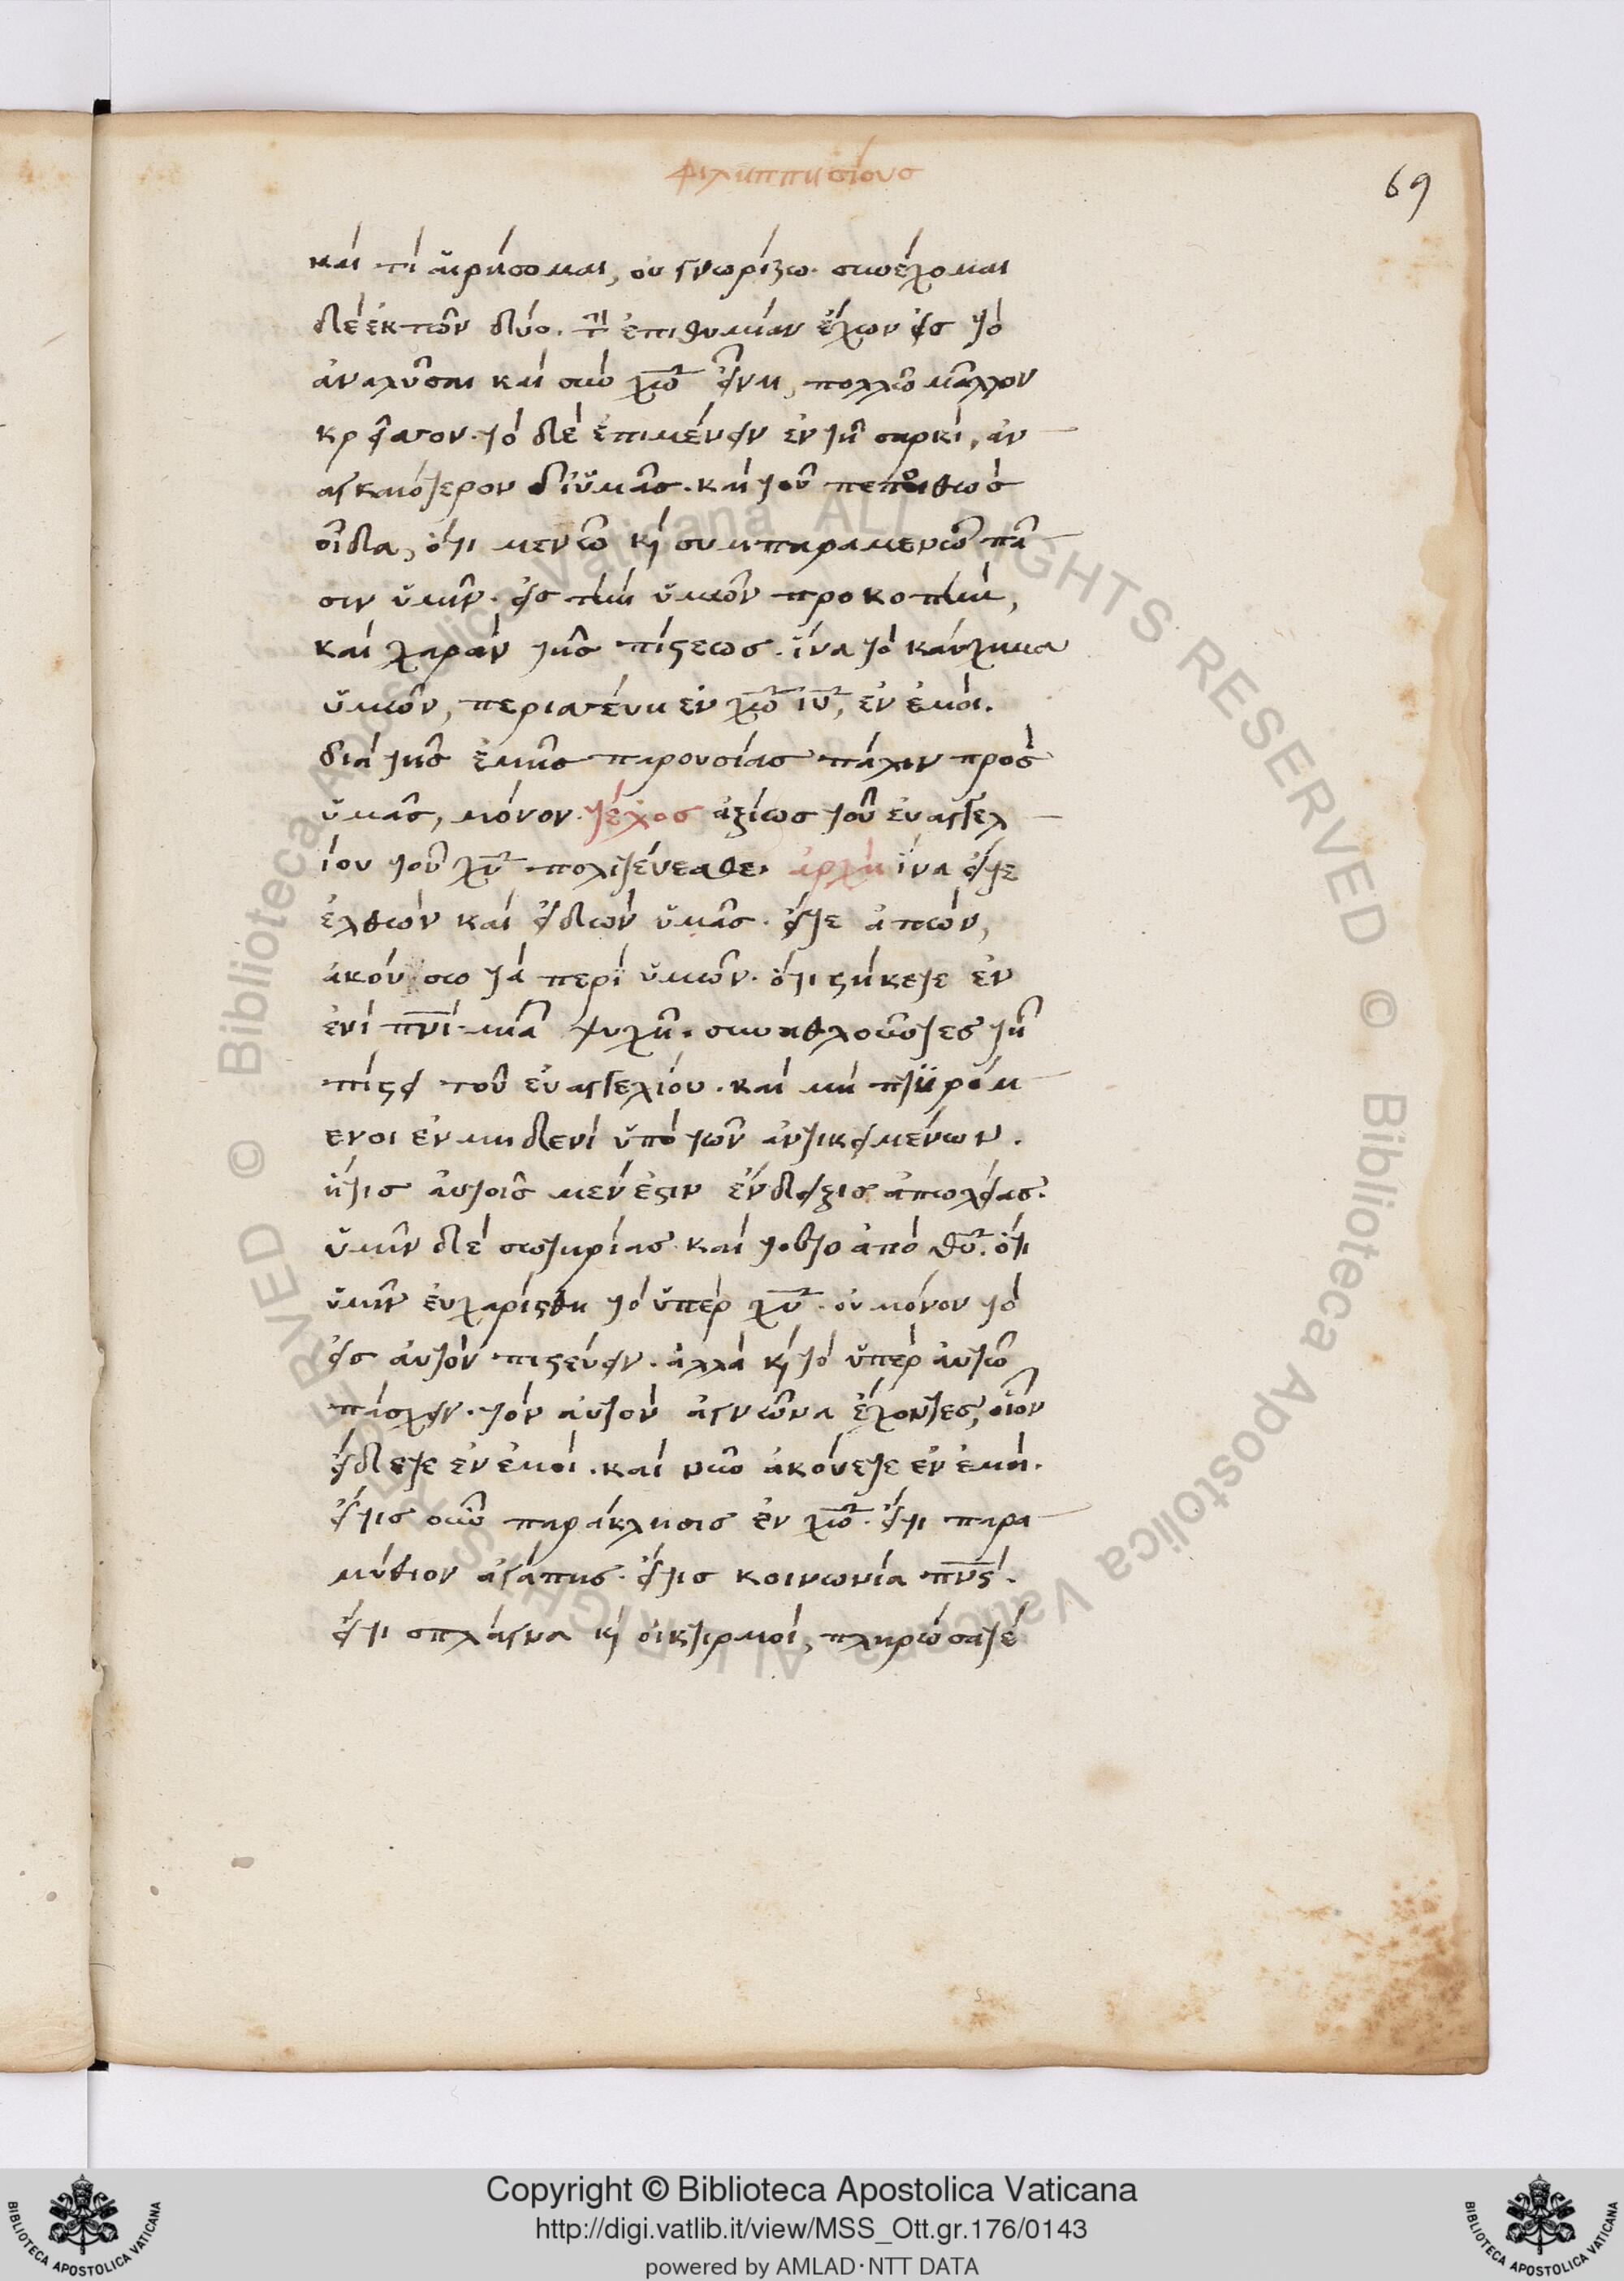 φιλιππησίους
69
καὶ τί αἱρήσομαι, οὐ γνωρίζω. συνέχομαι
δὲ ἐκ τῶν δύο. τὴν ἐπιθυμίαν ἔχων εἰς τὸ
ἀναλῦσαι καὶ σὺν χῶ εἶναι, πολλῶ μᾶλλον
κρεῖσσον. τὸ δὲ ἐπιμένειν ἐν τῆ σαρκὶ, ἀν
αγκαιότερον δι ὑμᾶς. καὶ τοῦ πεποιθὼς
οἶδα, ὅτι μενῶ κὶ συμπαραμενῶ πᾶ
σιν ὑμῖν. εἰς τὴν ὑμῶν προκοπὴν,
καὶ χαρὰν τῆς πίστεως. ἵνα τὸ καύχημα
ὑμῶν, περισσεύη ἐν χῶ ιῦ, ἐν ἐμοί.
διὰ τῆς ἐμῆς παρουσίας πάλιν πρὸς
ὑμᾶς, μόνον. τέλος ἀξίως τοῦ ἐυαγγελ
ίου τοῦ χῦ πολιτέυεσθε. ἀρχὴ ἵνα εἴτε
ἐλθὼν καὶ εἰδὼν ὑμᾶς. εἴτε ἀπὼν,
ἀκούσω τὰ περὶ ὑμῶν. ὅτι στήκετε ἐν
ἐνὶ πνι. μιᾶ ψυχῆ. συναθλοῦντες τῆ
πίστει τοῦ ἐυαγγελίου. καὶ μὴ πτυρόμ
ενοι ἐν μηδενὶ ὑπὸ τῶν ἀντικειμένων.
ἥτις ἀυτοῖς μέν ἐστιν ἔνδειξις ἀπωλείας.
ὑμῖν δὲ σωτηρίας. καὶ τοῦτο ἀπὸ θῦ. ὅτι
ὑμῖν ἐυχαρίσθη τὸ ὑπὲρ χῦ. οὐ μόνον τὸ
εἰς ἀυτὸν πιστεύειν. ἀλλὰ κὶ τὸ ὑπὲρ ἀυτῶ
πάσχειν. τὸν αὐτὸν ἀγνῶνα ἔχοντες, οἷον
εἴδετε ἐν ἐμοὶ. καὶ νῦν ἀκούετε ἐν ἐμοί.
εἴτις οὖν παράκλησις ἐν χῶ. εἴτι παρα
μύθιον ἀγάπης. εἴτις κοινωνία πνς.
εἴτι σπλάγνα κὶ οἰκτιρμοὶ, πληρώσατέ
Copyright © Biblioteca Apostolica Vaticana
http://digi.vatlib.it/view/MSS_Ott.gr.176/0143
powered by AMLAD·NTT DATA